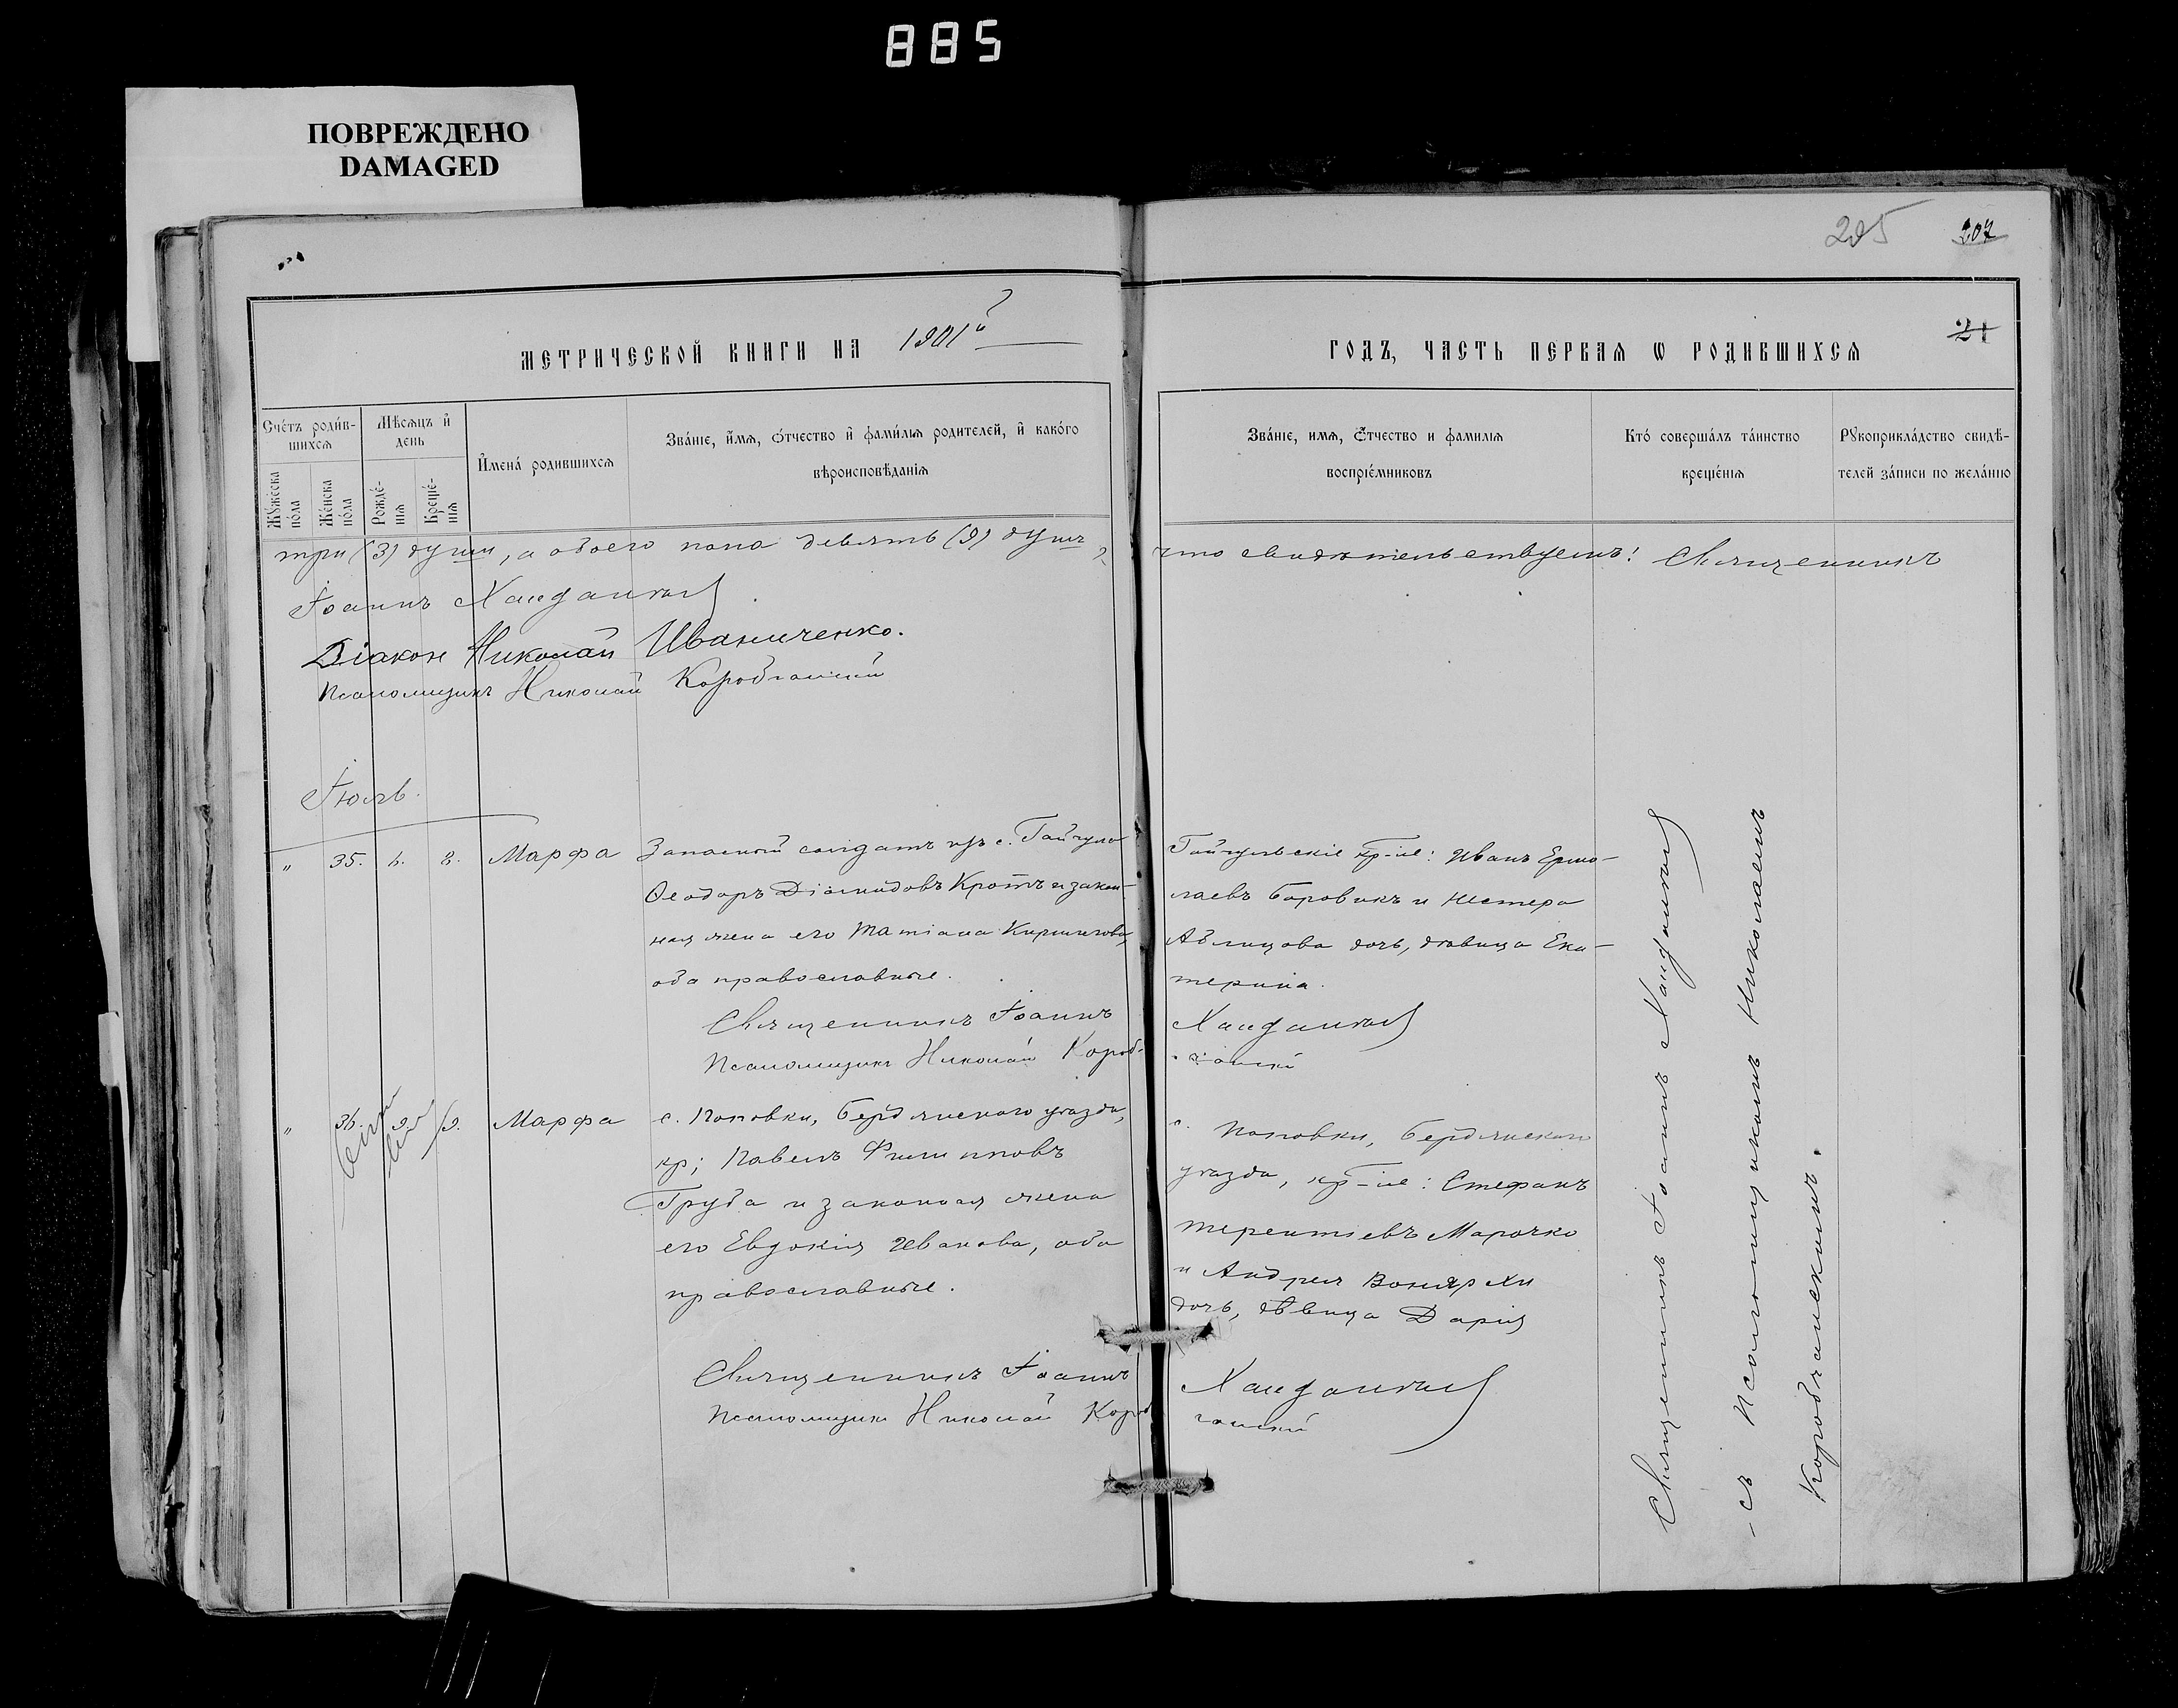 885
ПОВРЕЖДЕНО
DAMAGED
205 207
21
МЕТРИЧЕСКОЙ КНИГИ НА 1901й
ГОДЪ, ЧАСТЬ ПЕРВАЯ Ѡ РОДИВШИХСЯ
Счéтъ роди́в-
шихся
Мѣсяцъ и҆
день
Мꙋ́жеска
по́ла
Же́нска
по́ла
Рожде́-
нія
Креще́-
нія
И҆мена́ родившихся
Зва́ніе, и҆́мя, о҆́тчество и҆ фами́лья родителей, и҆ како́го
вѣроисповѣ́данія
Зва́ніе, имя, о҆́тчество и фамилія
воспріе́мниковъ
Кто́ соверша́лъ та́инство
креще́нія
Рꙋкоприкла́дство свидѣ-
телей за́писи по жела́нію
три (3) души, а обоего пола девять (9) душъ,
что свидѣтельствуемъ: Священникъ
Іоаннъ
Діакон Николай Иваниченко.
Псаломщикъ Николай Коробчанский
Іюль.
" 35. 2. Марфа
Запасный солдатъ изъ с. Гайчула
Ѳеодоръ Діомидовъ Кротъ и закон-
ная жена его Татіана Кириллова,
оба православные.
Священникъ Іоаннъ
Псаломщикъ Николай Короб-
Гайчульскіе кр-не: Иванъ Ермо-
лаевъ Боровикъ и Нестера
дочь, дѣвица Ека-
терина.
чанский
" 36. 9. 9. Марфа
с. Поповки, Бердянскаго уѣзда,
кр; Павелъ Филипповъ
Груба и законная жена
его Евдокія Иванова, оба
православные.
Священникъ Іоаннъ
Псаломщикъ Николай Короб
с. Поповки, Бердянскаго
уѣзда, кр-не: Стефанъ
Терентіевъ Марочко
и Андрея
дочь, дѣвица Дарія
чанский
Священникъ Іоаннъ
съ Псаломщикомъ Николаемъ
Коробчанскимъ.